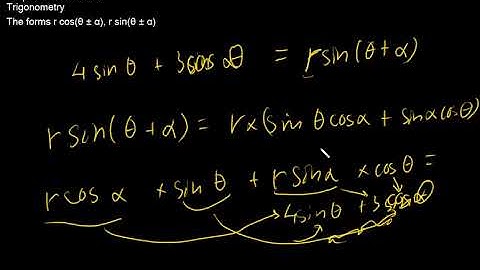 Trigonometry
The forms r cos(θ ± α), r sin(θ ± α)
4 sin θ + 3 cos θ = r sin(θ + α)
r sin(θ + α) = r × (sin θ cos α + sin α cos θ)
r cos α × sin θ + r sin α × cos θ =
4 sin θ + 3 cos